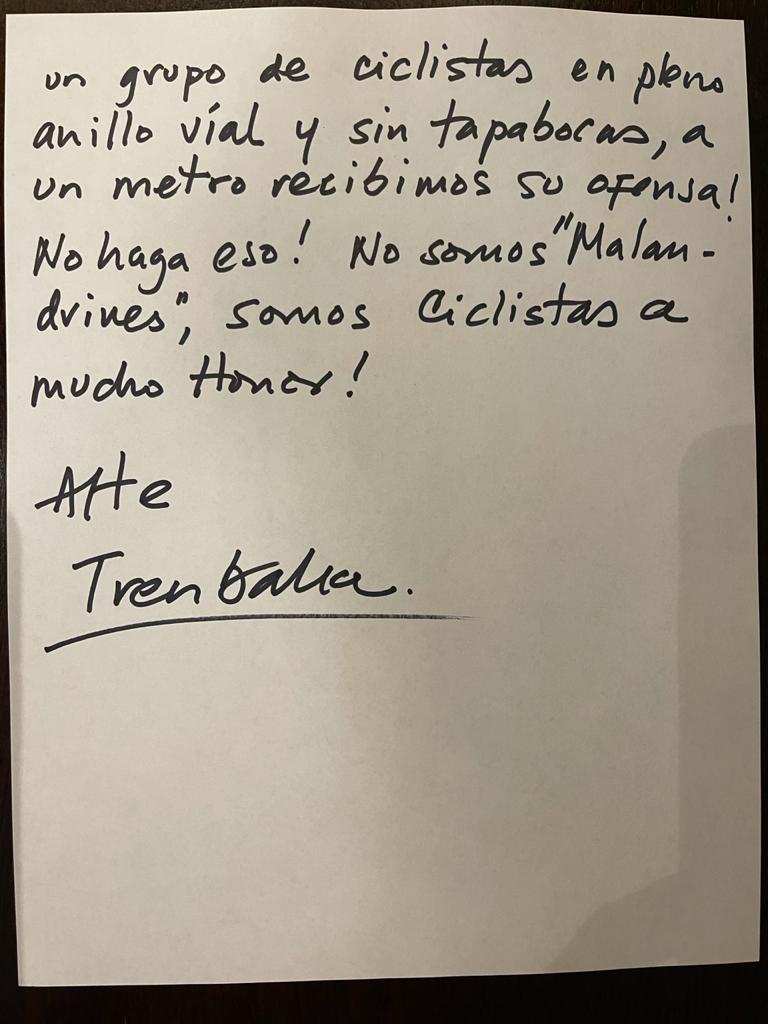 un grupo de ciclistas en pleno
anillo víal y sin tapabocas, a
un metro recibimos su ofensa!
No haga eso! No somos "Malan-
drines", somos Ciclistas a
mucho Honor!
Atte
Tren